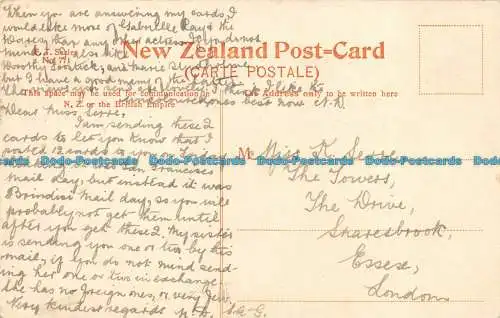 When you are answering my cards, I
would like more of Gabrielle Ray & the
Dares, or any other actress. I do not
mind
New Zealand Post-Card
(CARTE POSTALE)
F. T. Series
No. 771
but I have a good many of the latter
This space may be used for communication in
N. Z. or the British Empire
The Address only to be written here
best now
Dear Miss Serre,
I am sending these 2
cards to let you know that I
posted 12 cards to you
San Francisco
mail day, but instead it was
Brindisi mail day, so you will
probably not get them until
after you get these 2. My sister
is sending you one or two by this
mail, if you do not mind send-
ing her one or two in exchange.
She has no foreign ones, or very few.
Very kindest regards
Miss K. Serre,
The Towers,
The Drive,
Snaresbrook,
Essex,
London
Dado-Postcards Dado-Postcards Dado-Postcards Dado-Postcards Dado-Postcards Dado-Postcards